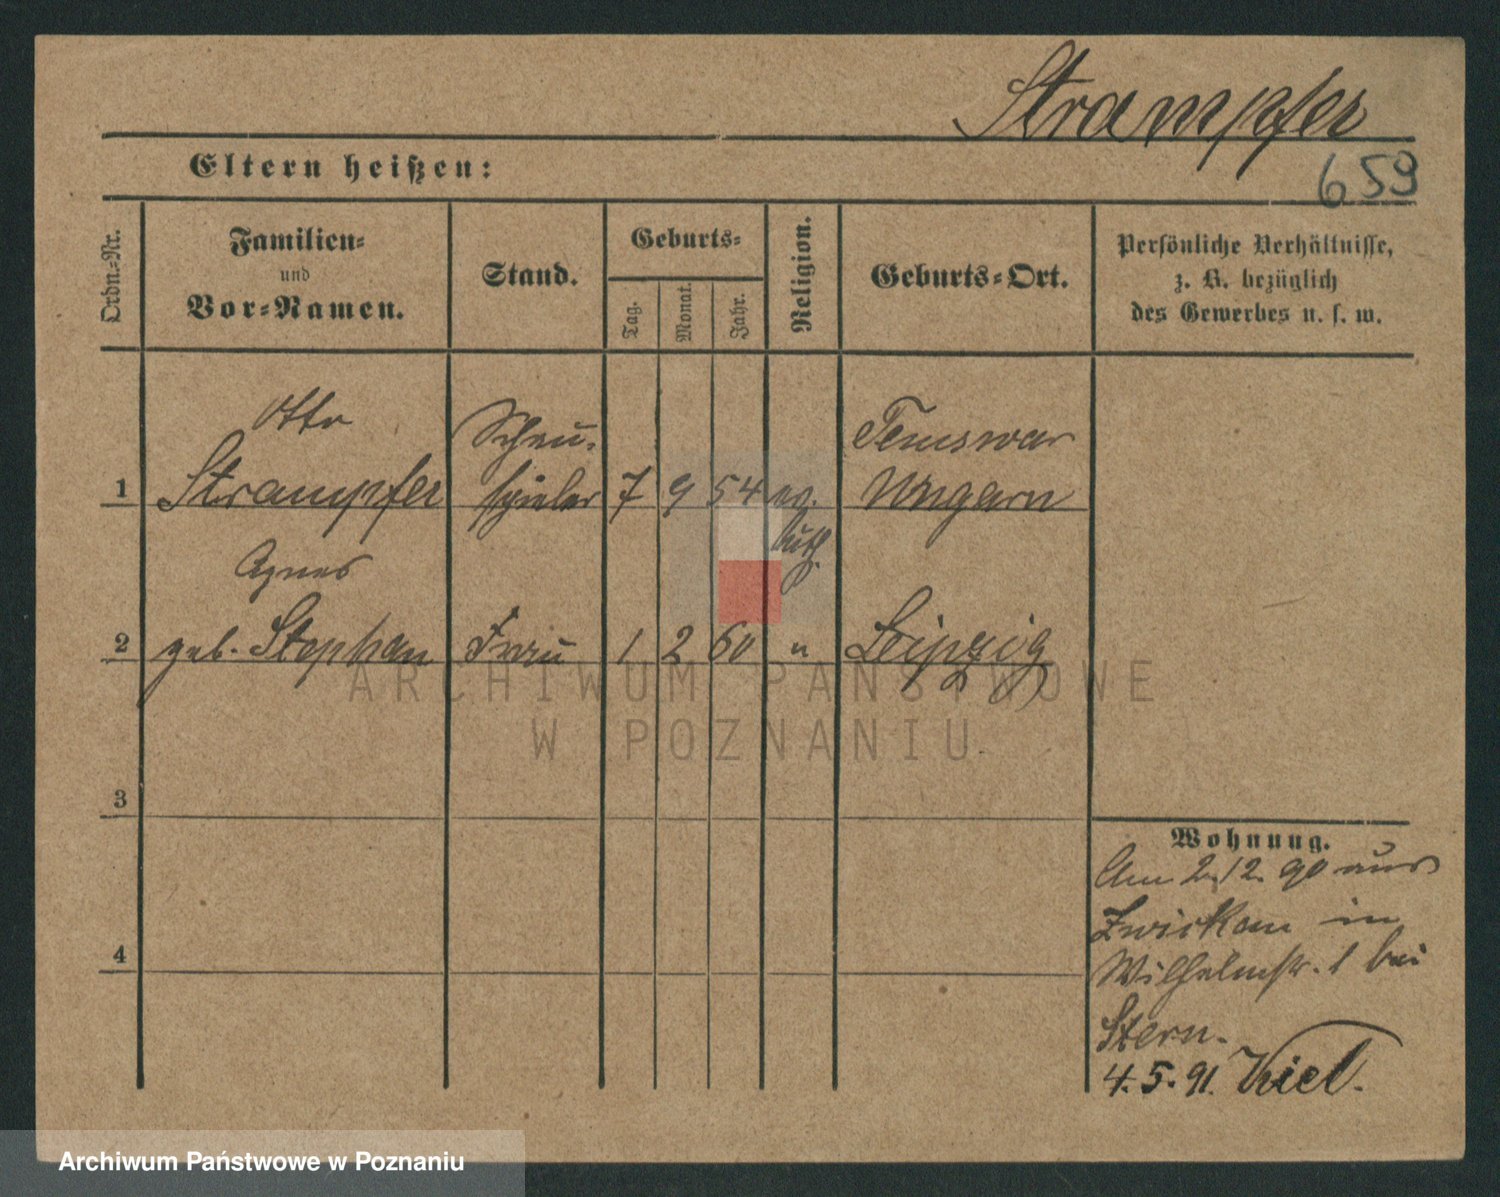 Strampfer
659
Eltern heißen:
Ordn.-Nr.
Familien-
und
Vor-Namen.
Stand.
Geburts-
Tag.
Monat.
Jahr.
Religion.
Geburts-Ort.
Persönliche Verhältnisse,
z. B. bezüglich
des Gewerbes u. s. w.
Otto Schau- Temswar
1 Strampfer spieler 7 9 54 ev. Ungarn
luth.
Agnes
2 geb. Stephan Frau 1 2 60 " Leipzig
3
4
Wohnung.
Am 2.12.90 aus
Zwickau in
Wilhelmstr. 1 bei
Stern.
4.5.91. Kiel.
ARCHIWUM PAŃSTWOWE
W POZNANIU
Archiwum Państwowe w Poznaniu